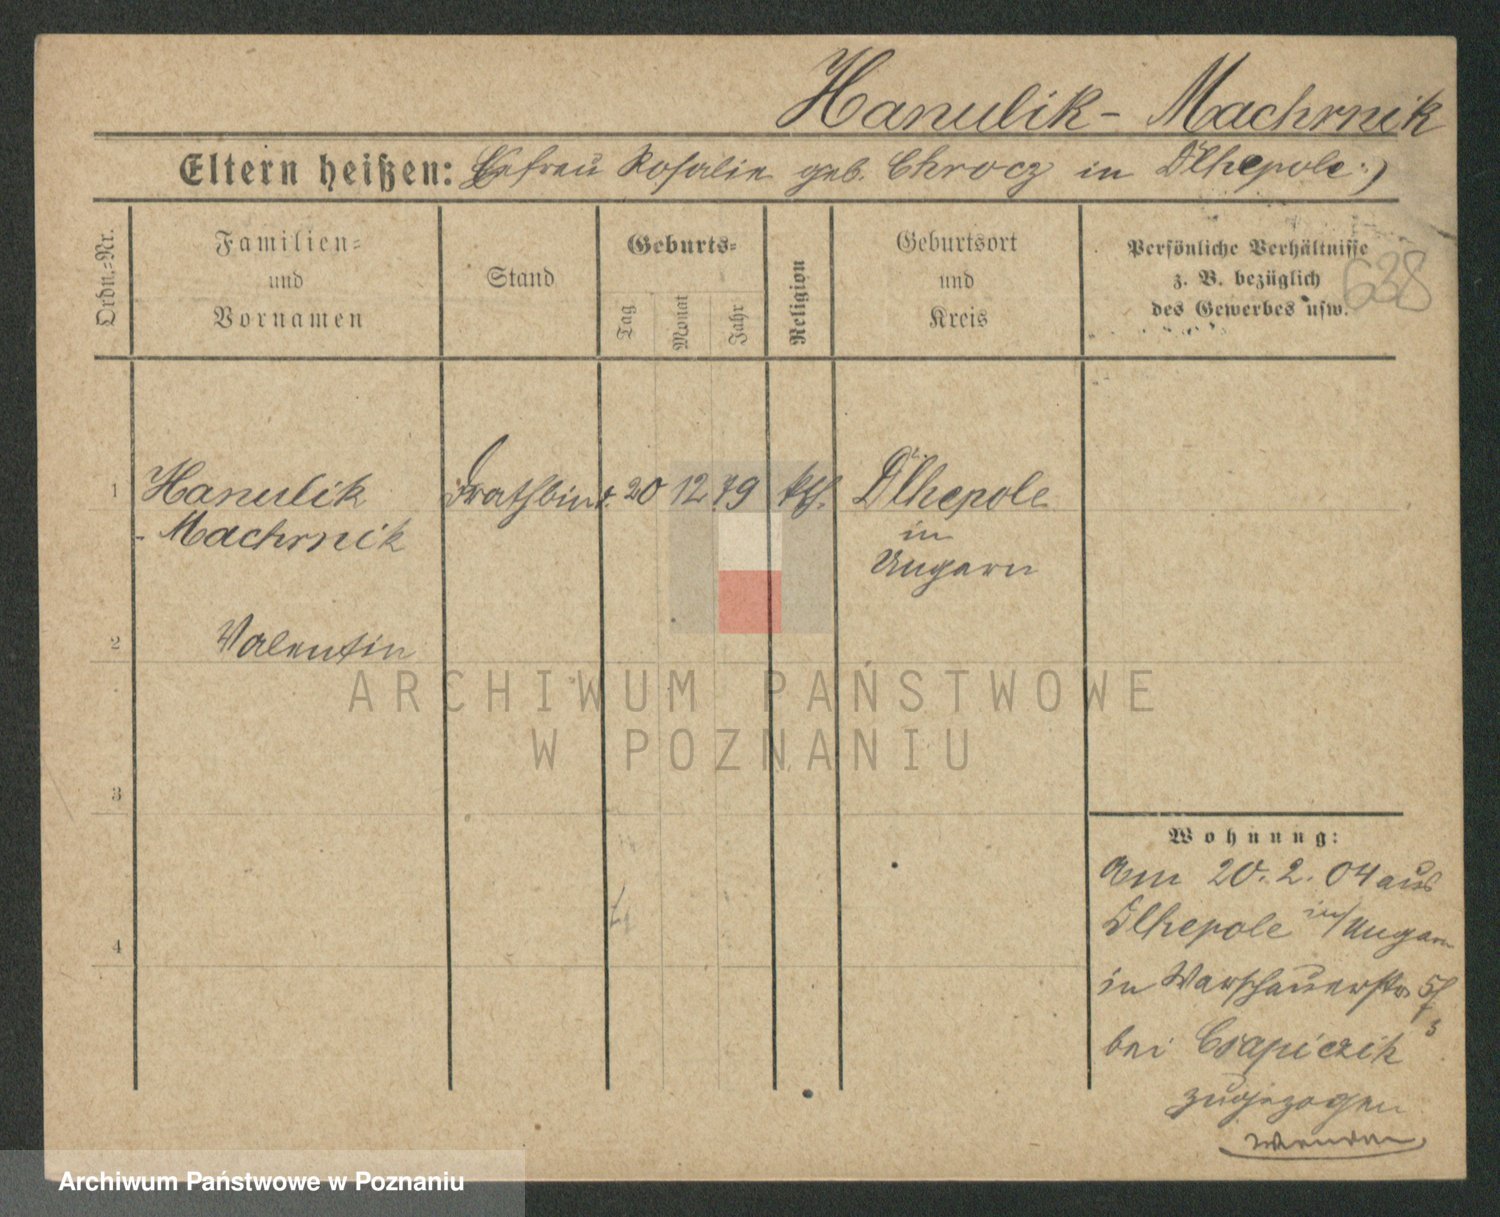 Hanulik - Machrnik
Eltern heißen: Ehefrau Rosalie geb. Chrocz in Dlhepole :)
Ordn.-Nr.
Familien-
und
Vornamen
Stand
Geburts-
Tag
Monat
Jahr
Religion
Geburtsort
und
Kreis
Persönliche Verhältnisse
z. B. bezüglich
des Gewerbes usw.
638
1
Hanulik
- Machrnik
Drathbind. 20 12 79 kth.
Dlhepole
in
Ungarn
2
Valentin
ARCHIWUM PAŃSTWOWE
W POZNANIU
3
4
Wohnung:
Am 20. 2. 04 aus
Dlhepole in/Ungarn
in Warschauerstr. 5/
3
bei Csapiczik
zugezogen
Wenden
Archiwum Państwowe w Poznaniu